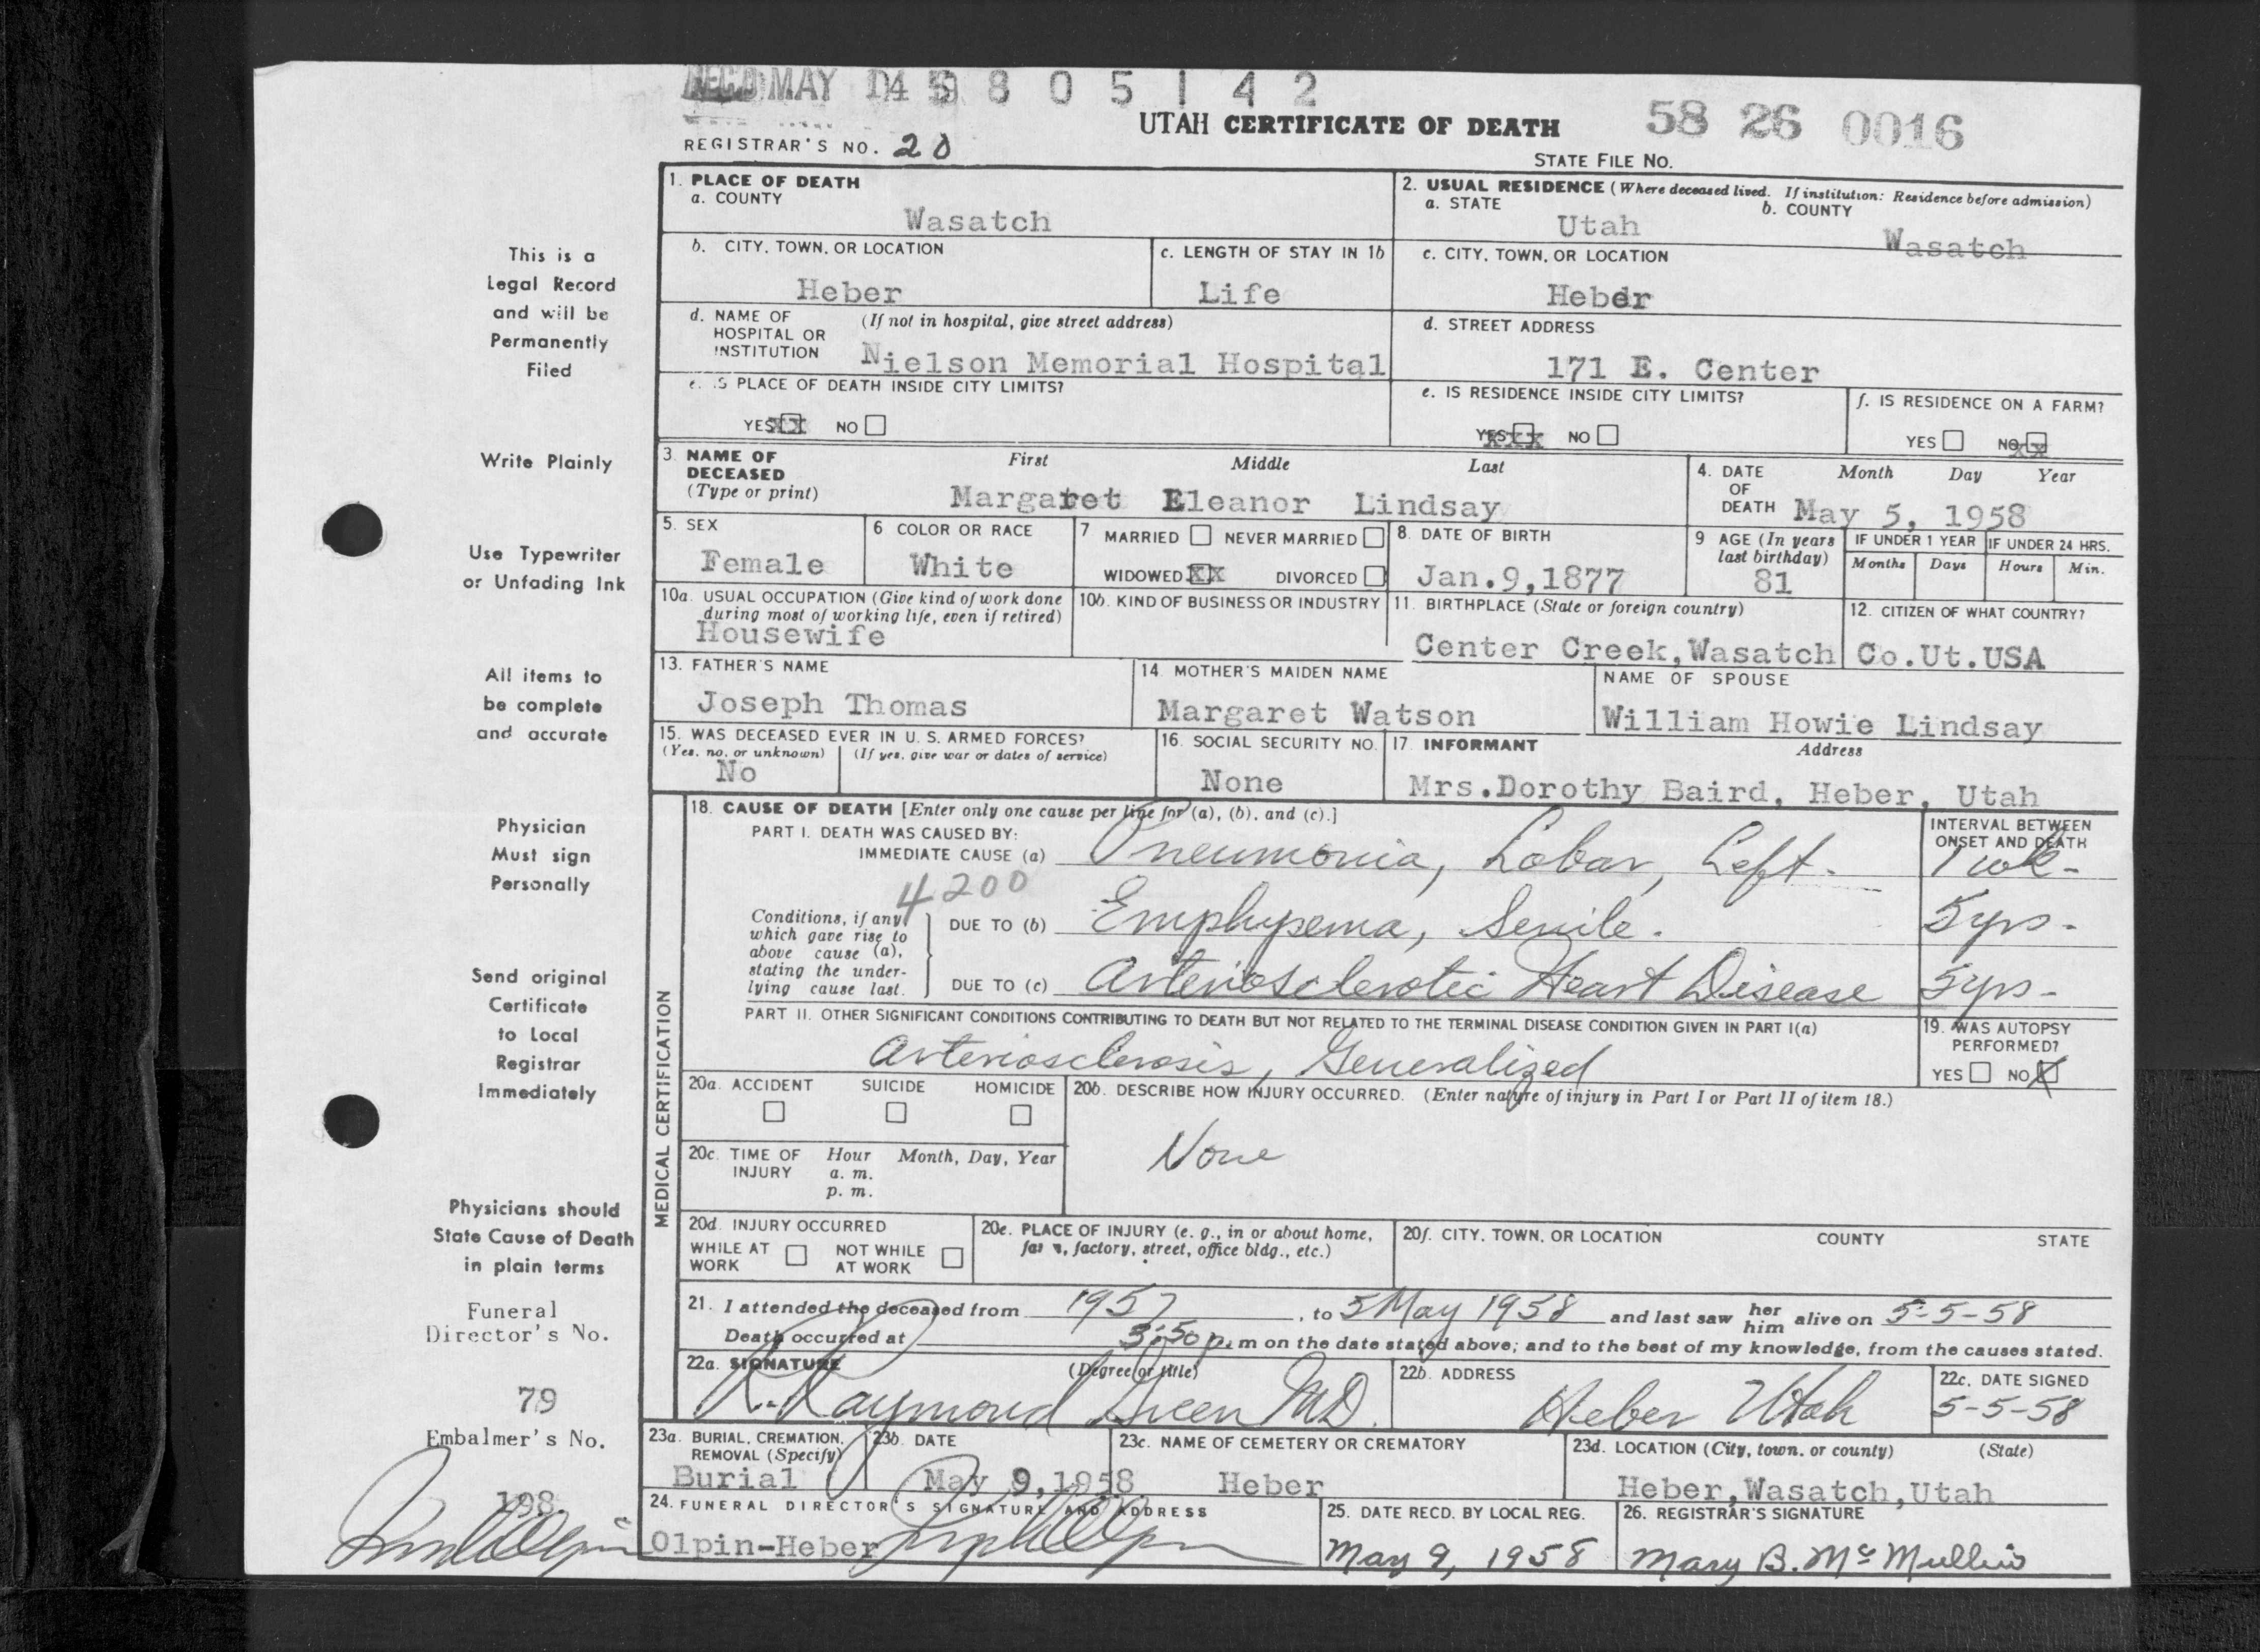 REC'D MAY 14 5 8 0 5 1 4 2
UTAH CERTIFICATE OF DEATH
58 26 0016
REGISTRAR'S NO. 20
STATE FILE NO.
This is a
Legal Record
and will be
Permanently
Filed
Write Plainly
Use Typewriter
or Unfading Ink
All items to
be complete
and accurate
Physician
Must sign
Personally
Send original
Certificate
to Local
Registrar
Immediately
Physicians should
State Cause of Death
in plain terms
Funeral
Director's No.
79
Embalmer's No.
198
1. PLACE OF DEATH
a. COUNTY
Wasatch
2. USUAL RESIDENCE (Where deceased lived. If institution: Residence before admission)
a. STATE
Utah
b. COUNTY
Wasatch
b. CITY, TOWN, OR LOCATION
Heber
c. LENGTH OF STAY IN 1b
Life
c. CITY, TOWN, OR LOCATION
Heber
d. NAME OF HOSPITAL OR INSTITUTION
(If not in hospital, give street address)
Nielson Memorial Hospital
d. STREET ADDRESS
171 E. Center
e. IS PLACE OF DEATH INSIDE CITY LIMITS?
YES XX NO
e. IS RESIDENCE INSIDE CITY LIMITS?
YES XXX NO
f. IS RESIDENCE ON A FARM?
YES NO XX
3. NAME OF DECEASED
(Type or print)
First Middle Last
Margaret Eleanor Lindsay
4. DATE OF DEATH
Month Day Year
May 5, 1958
5. SEX
Female
6 COLOR OR RACE
White
7 MARRIED NEVER MARRIED
WIDOWED XX DIVORCED
8. DATE OF BIRTH
Jan.9,1877
9 AGE (In years last birthday)
81
IF UNDER 1 YEAR
Months Days
IF UNDER 24 HRS.
Hours Min.
10a. USUAL OCCUPATION (Give kind of work done during most of working life, even if retired)
Housewife
10b. KIND OF BUSINESS OR INDUSTRY
11. BIRTHPLACE (State or foreign country)
Center Creek,Wasatch
12. CITIZEN OF WHAT COUNTRY?
Co.Ut.USA
13. FATHER'S NAME
Joseph Thomas
14. MOTHER'S MAIDEN NAME
Margaret Watson
NAME OF SPOUSE
William Howie Lindsay
15. WAS DECEASED EVER IN U. S. ARMED FORCES?
(Yes, no, or unknown) (If yes, give war or dates of service)
No
16. SOCIAL SECURITY NO.
None
17. INFORMANT Address
Mrs.Dorothy Baird, Heber, Utah
MEDICAL CERTIFICATION
18. CAUSE OF DEATH [Enter only one cause per line for (a), (b), and (c).]
INTERVAL BETWEEN ONSET AND DEATH
PART I. DEATH WAS CAUSED BY:
IMMEDIATE CAUSE (a) Pneumonia, Lobar, Left. 1 wk-
4200
Conditions, if any, which gave rise to above cause (a), stating the underlying cause last.
DUE TO (b) Emphysema, Senile. 5 yrs-
DUE TO (c) Arteriosclerotic Heart Disease 5 yrs-
PART II. OTHER SIGNIFICANT CONDITIONS CONTRIBUTING TO DEATH BUT NOT RELATED TO THE TERMINAL DISEASE CONDITION GIVEN IN PART I(a)
Arteriosclerosis, Generalized
19. WAS AUTOPSY PERFORMED?
YES NO X
20a. ACCIDENT SUICIDE HOMICIDE
20b. DESCRIBE HOW INJURY OCCURRED. (Enter nature of injury in Part I or Part II of item 18.)
None
20c. TIME OF INJURY
Hour Month, Day, Year
a. m.
p. m.
20d. INJURY OCCURRED
WHILE AT WORK NOT WHILE AT WORK
20e. PLACE OF INJURY (e. g., in or about home, farm, factory, street, office bldg., etc.)
20f. CITY, TOWN, OR LOCATION COUNTY STATE
21. I attended the deceased from 1957, to 5 May 1958 and last saw her him alive on 5-5-58
Death occurred at 3:50 p.m on the date stated above; and to the best of my knowledge, from the causes stated.
22a. SIGNATURE (Degree or title)
R. Raymond Green MD.
22b. ADDRESS
Heber Utah
22c. DATE SIGNED
5-5-58
23a. BURIAL, CREMATION, REMOVAL (Specify)
Burial
23b. DATE
May 9,1958
23c. NAME OF CEMETERY OR CREMATORY
Heber
23d. LOCATION (City, town, or county) (State)
Heber,Wasatch,Utah
24. FUNERAL DIRECTOR'S SIGNATURE AND ADDRESS
Olpin-Heber
25. DATE RECD. BY LOCAL REG.
May 9, 1958
26. REGISTRAR'S SIGNATURE
Mary B. McMullin